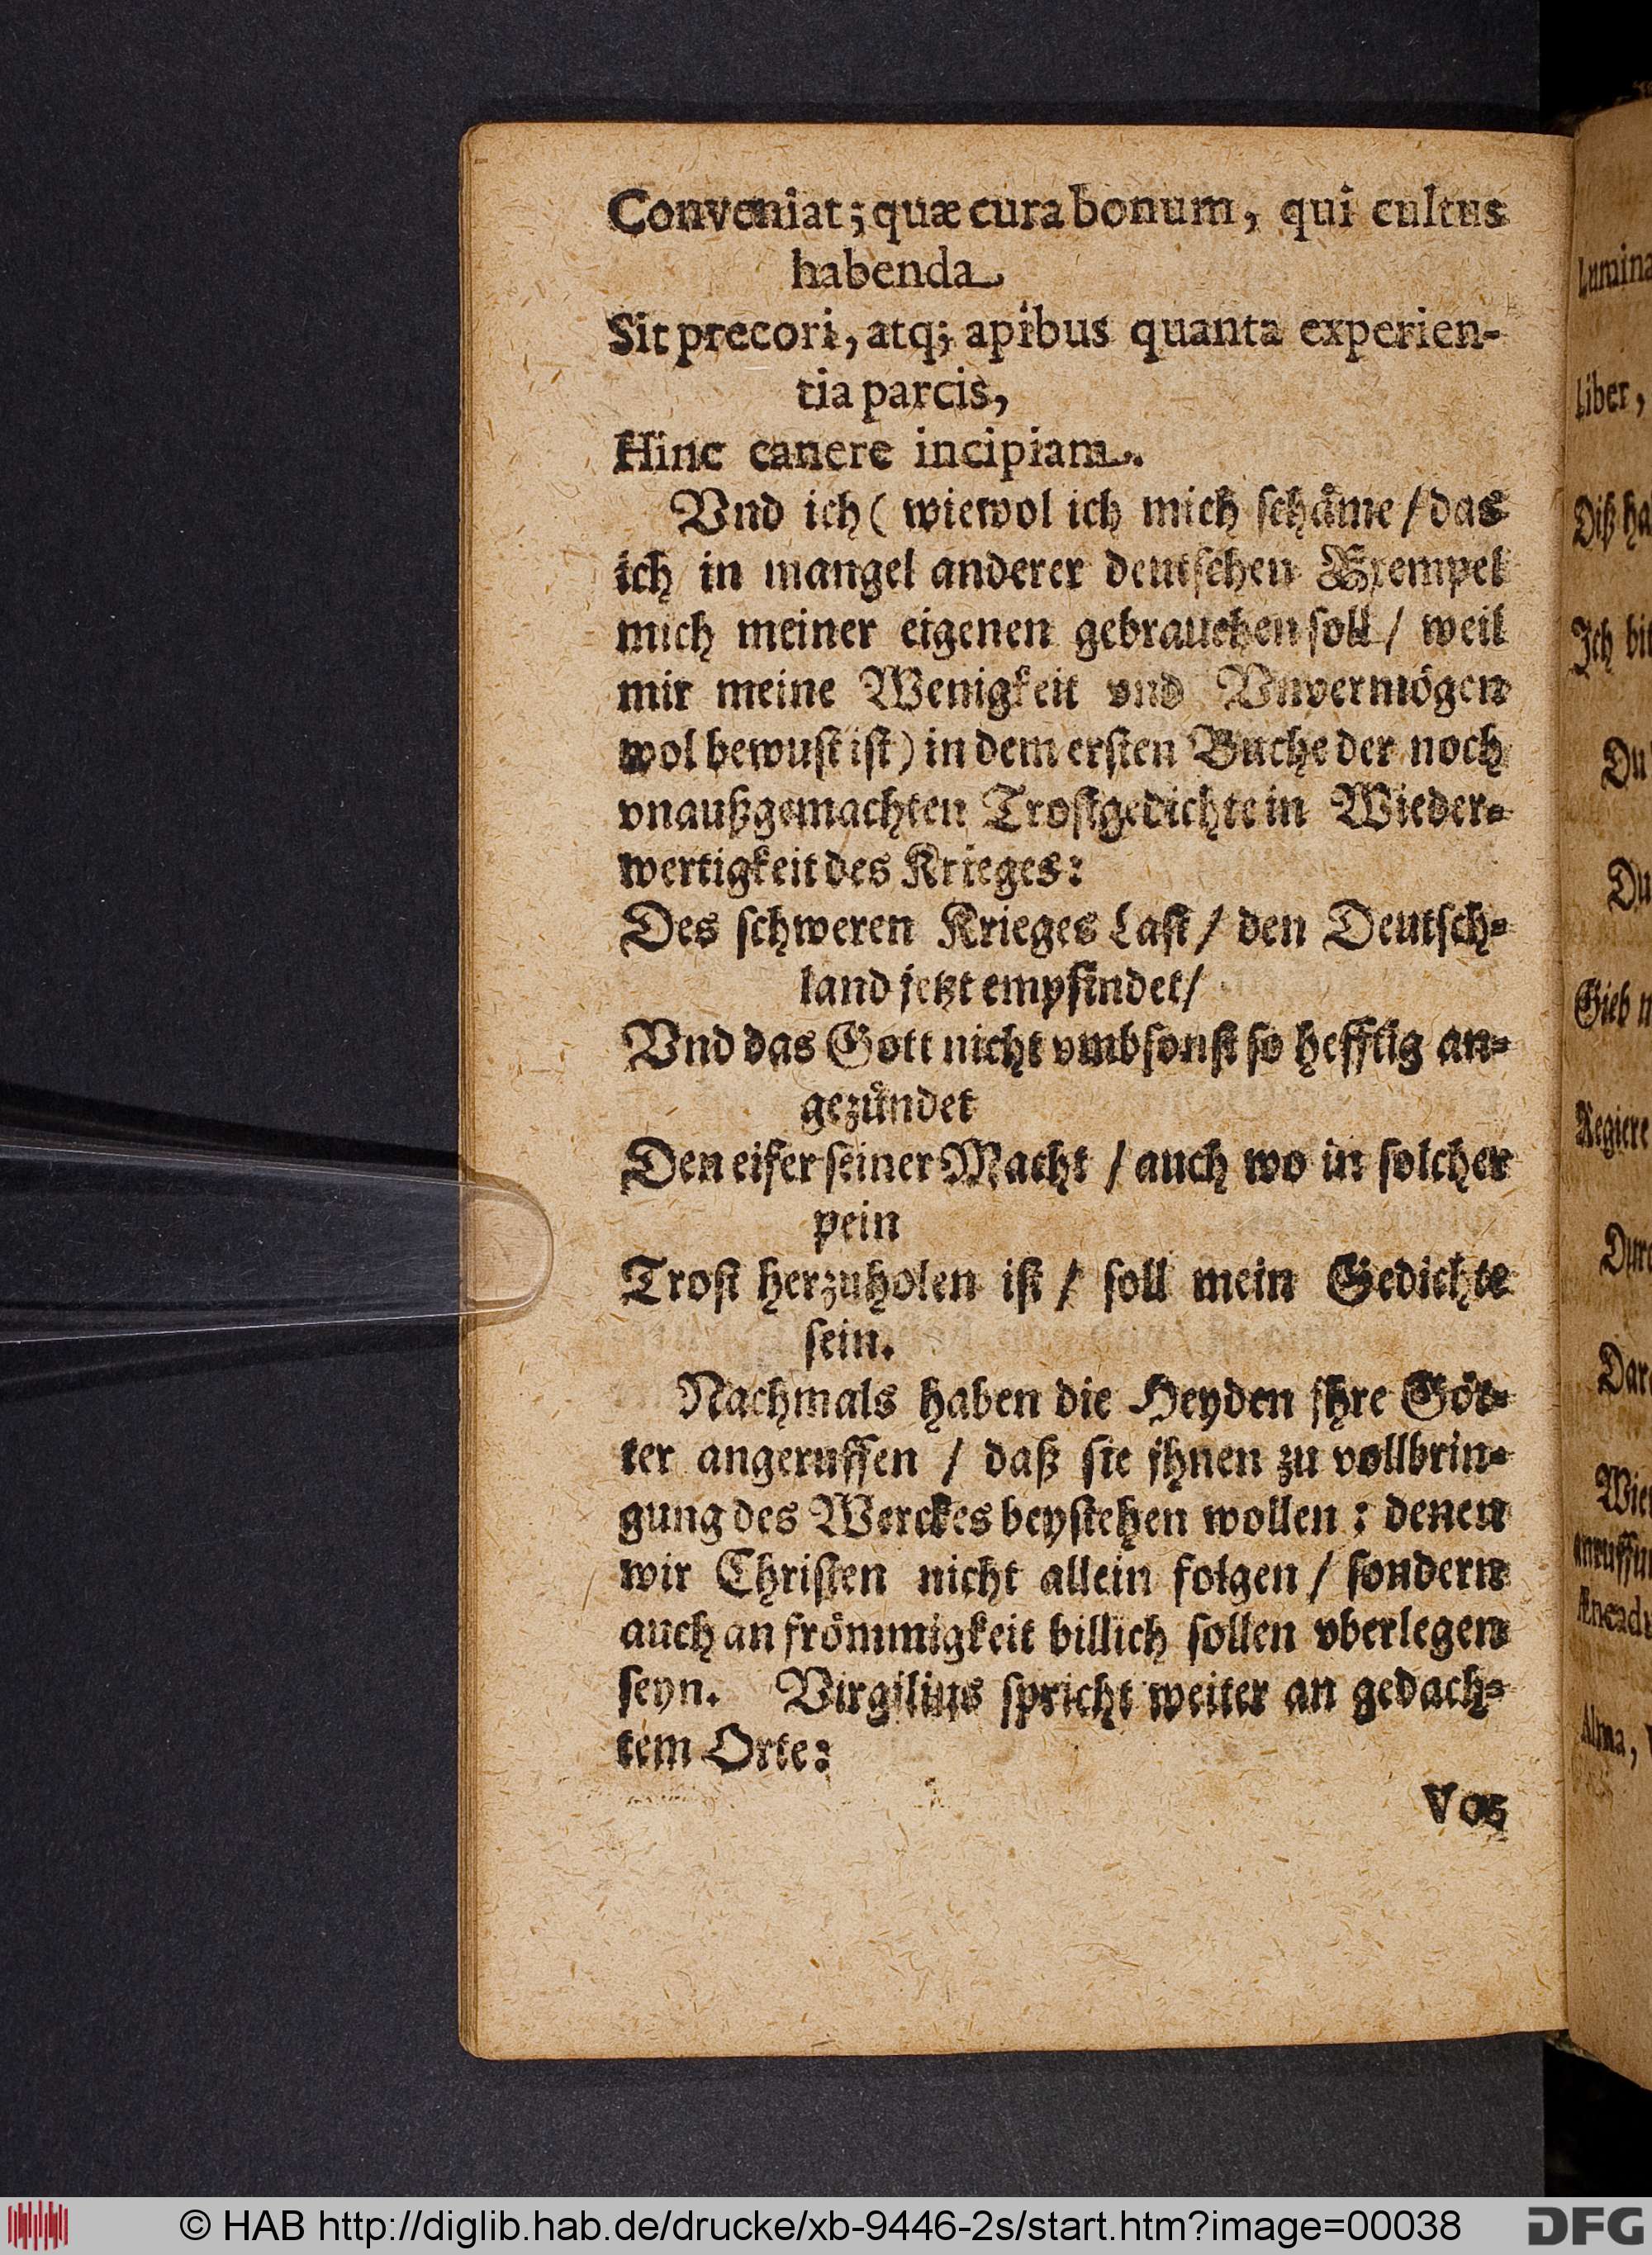 Conveniat; quæ cura bonum, qui cultus
habenda
Sit precori, atq; apibus quanta experien-
tia parcis,
Hinc canere incipiam.
Vnd ich ( wiewol ich mich schäme / das
ich in mangel anderer deutschen Exempel
mich meiner eigenen gebrauchen soll / weil
mir meine Wenigkeit vnd Vnvermögen
wol bewust ist) in dem ersten Buche der noch
vnaußgemachten Trostgedichte in Wieder-
wertigkeit des Krieges:
Des schweren Krieges Last / den Deutsch-
land jetzt empfindet/
Vnd das Gott nicht vmbsonst so hefftig an-
gezündet
Den eifer seiner Macht / auch wo in solcher
pein
Trost herzuholen ist / soll mein Gedichte
sein.
Nachmals haben die Heyden jhre Göt-
ter angeruffen / daß sie jhnen zu vollbrin-
gung des Werckes beystehen wollen : denen
wir Christen nicht allein folgen / sondern
auch an frömmigkeit billich sollen vberlegen
seyn. Virgilius spricht weiter an gedach-
tem Orte:
Vos
Lumina
Liber,
Diß ha
Ich bit
Du
Du
Gieb
Regiere
Wie
Alma,
© HAB http://diglib.hab.de/drucke/xb-9446-2s/start.htm?image=00038
DFG